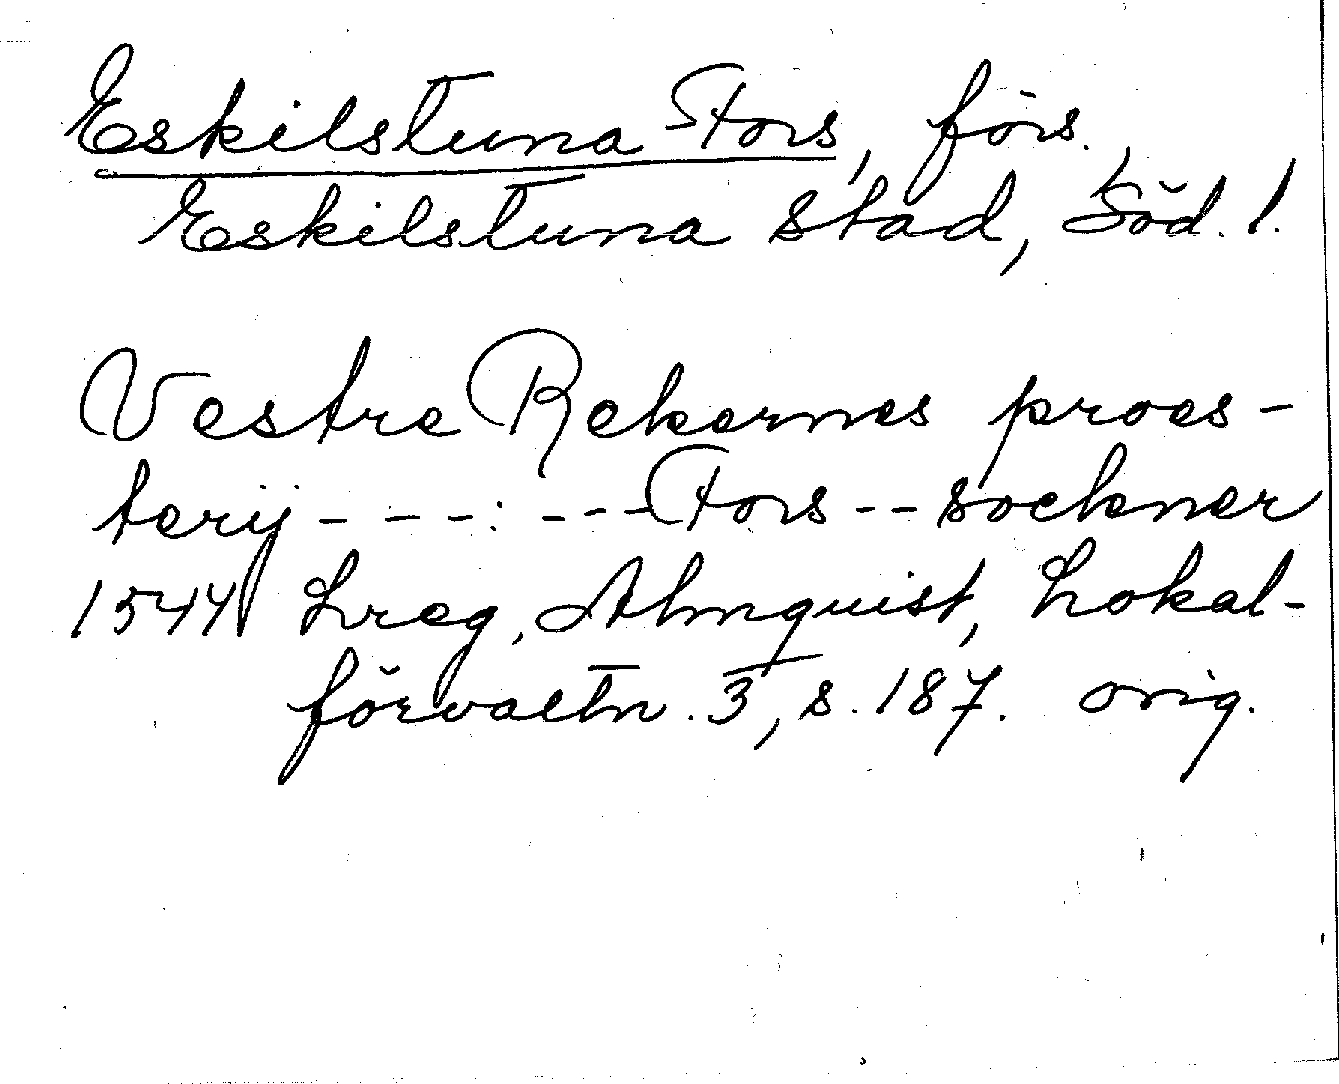 Eskilstuna Fors, förs.
Eskilstuna stad, Söd. l.
Vestre Rekernes proes-
terij - - - : - - - Fors - - sockner
1544 Lreg, Almquist, Lokal-
förvaltn. 3, s. 187. orig.